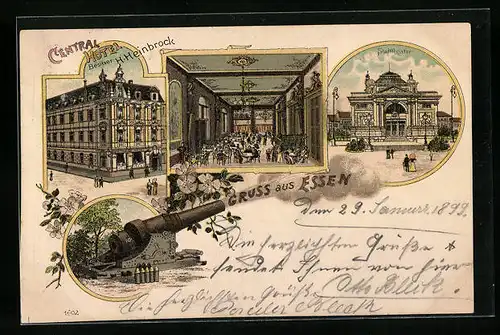 CENTRAL
HOTEL
Besitzer H. Heinbrock
Stadttheater
GRUSS aus ESSEN
Den 29. Januar 1899.
Die herzlichsten Grüße
sendet Ihnen von hier
Die herzlichsten Grüße
1602